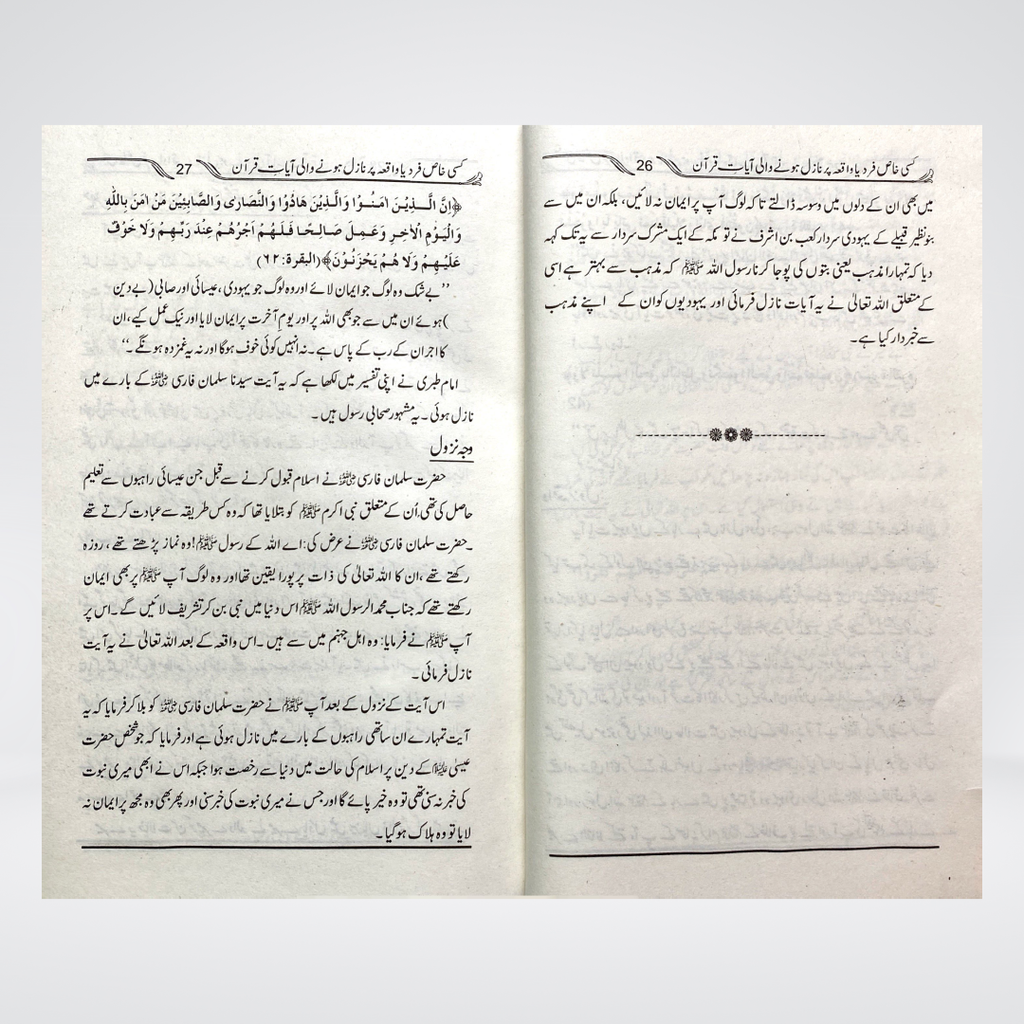 کسی خاص فرد یا واقعہ پر نازل ہونے والی آیاتِ قرآن 26
میں بھی ان کے دلوں میں وسوسہ ڈالتے تاکہ لوگ آپ پر ایمان نہ لائیں، بلکہ ان میں سے
بنو نظیر قبیلے کے یہودی سردار کعب بن اشرف نے تو مکہ کے ایک مشرک سردار سے یہ تک کہہ
دیا کہ تمہارا مذہب یعنی بتوں کی پوجا کرنا رسول اللہ ﷺ کہ مذہب سے بہتر ہے اسی
کے متعلق اللہ تعالیٰ نے یہ آیات نازل فرمائی اور یہودیوں کو ان کے اپنے مذہب
سے خبردار کیا ہے۔
کسی خاص فرد یا واقعہ پر نازل ہونے والی آیاتِ قرآن 27
﴿اِنَّ الَّـذِيْنَ اٰمَنُـوْا وَالَّـذِيْنَ هَادُوْا وَالنَّصَارٰى وَالصَّابِئِيْنَ مَنْ اٰمَنَ بِاللّٰهِ
وَالْيَوْمِ الْاٰخِرِ وَعَمِـلَ صَالِحًا فَـلَهُـمْ اَجْرُهُـمْ عِنْدَ رَبِّـهِـمْ وَلَا خَوْفٌ
عَلَيْـهِـمْ وَلَا هُـمْ يَحْزَنُـوْنَ﴾ (البقرة: ٦٢)
’’بے شک وہ لوگ جو ایمان لائے اور وہ لوگ جو یہودی، عیسائی اور صابی (بے دین
) ہوئے ان میں سے جو بھی اللہ پر اور یوم آخرت پر ایمان لایا اور نیک عمل کیے، ان
کا اجر ان کے رب کے پاس ہے۔ نہ انہیں کوئی خوف ہوگا اور نہ یہ غمزدہ ہونگے۔‘‘
امام طبری نے اپنی تفسیر میں لکھا ہے کہ یہ آیت سیدنا سلمان فارسی رضی اللہ عنہ کے بارے میں
نازل ہوئی۔ یہ مشہور صحابی رسول ہیں۔
وجہ نزول
حضرت سلمان فارسی رضی اللہ عنہ نے اسلام قبول کرنے سے قبل جن عیسائی راہبوں سے تعلیم
حاصل کی تھی، اُن کے متعلق نبی اکرم ﷺ کو بتلایا تھا کہ وہ کس طریقہ سے عبادت کرتے تھے
۔حضرت سلمان فارسی رضی اللہ عنہ نے عرض کی: اے اللہ کے رسول ﷺ! وہ نماز پڑھتے تھے، روزہ
رکھتے تھے، ان کا اللہ تعالیٰ کی ذات پر پورا یقین تھا اور وہ لوگ آپ ﷺ پر بھی ایمان
رکھتے تھے کہ جناب محمد الرسول اللہ ﷺ اس دنیا میں نبی بن کر تشریف لائیں گے۔ اس پر
آپ ﷺ نے فرمایا: وہ اہل جہنم میں سے ہیں۔ اس واقعہ کے بعد اللہ تعالیٰ نے یہ آیت
نازل فرمائی۔
اس آیت کے نزول کے بعد آپ ﷺ نے حضرت سلمان فارسی رضی اللہ عنہ کو بلا کر فرمایا کہ یہ
آیت تمہارے ان ساتھی راہبوں کے بارے میں نازل ہوئی ہے اور فرمایا کہ جو شخص حضرت
عیسیٰ علیہ السلام کے دین پر اسلام کی حالت میں دنیا سے رخصت ہوا جبکہ اس نے ابھی میری نبوت
کی خبر نہ سنی تھی تو وہ خیر پائے گا اور جس نے میری نبوت کی خبر سنی اور پھر بھی وہ مجھ پر ایمان نہ
لایا تو وہ ہلاک ہو گیا۔